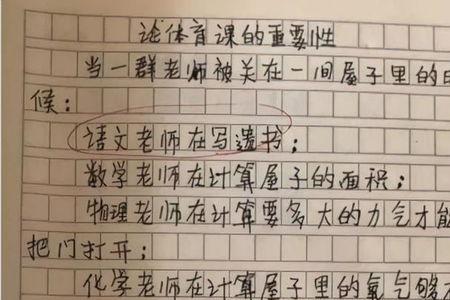 论体育课的重要性
当一群老师被关在一间屋子里的
候：
语文老师在写遗书；
数学老师在计算屋子的面积；
物理老师在计算要多大的力气才能
把门打开；
化学老师在计算屋子里的氧气够